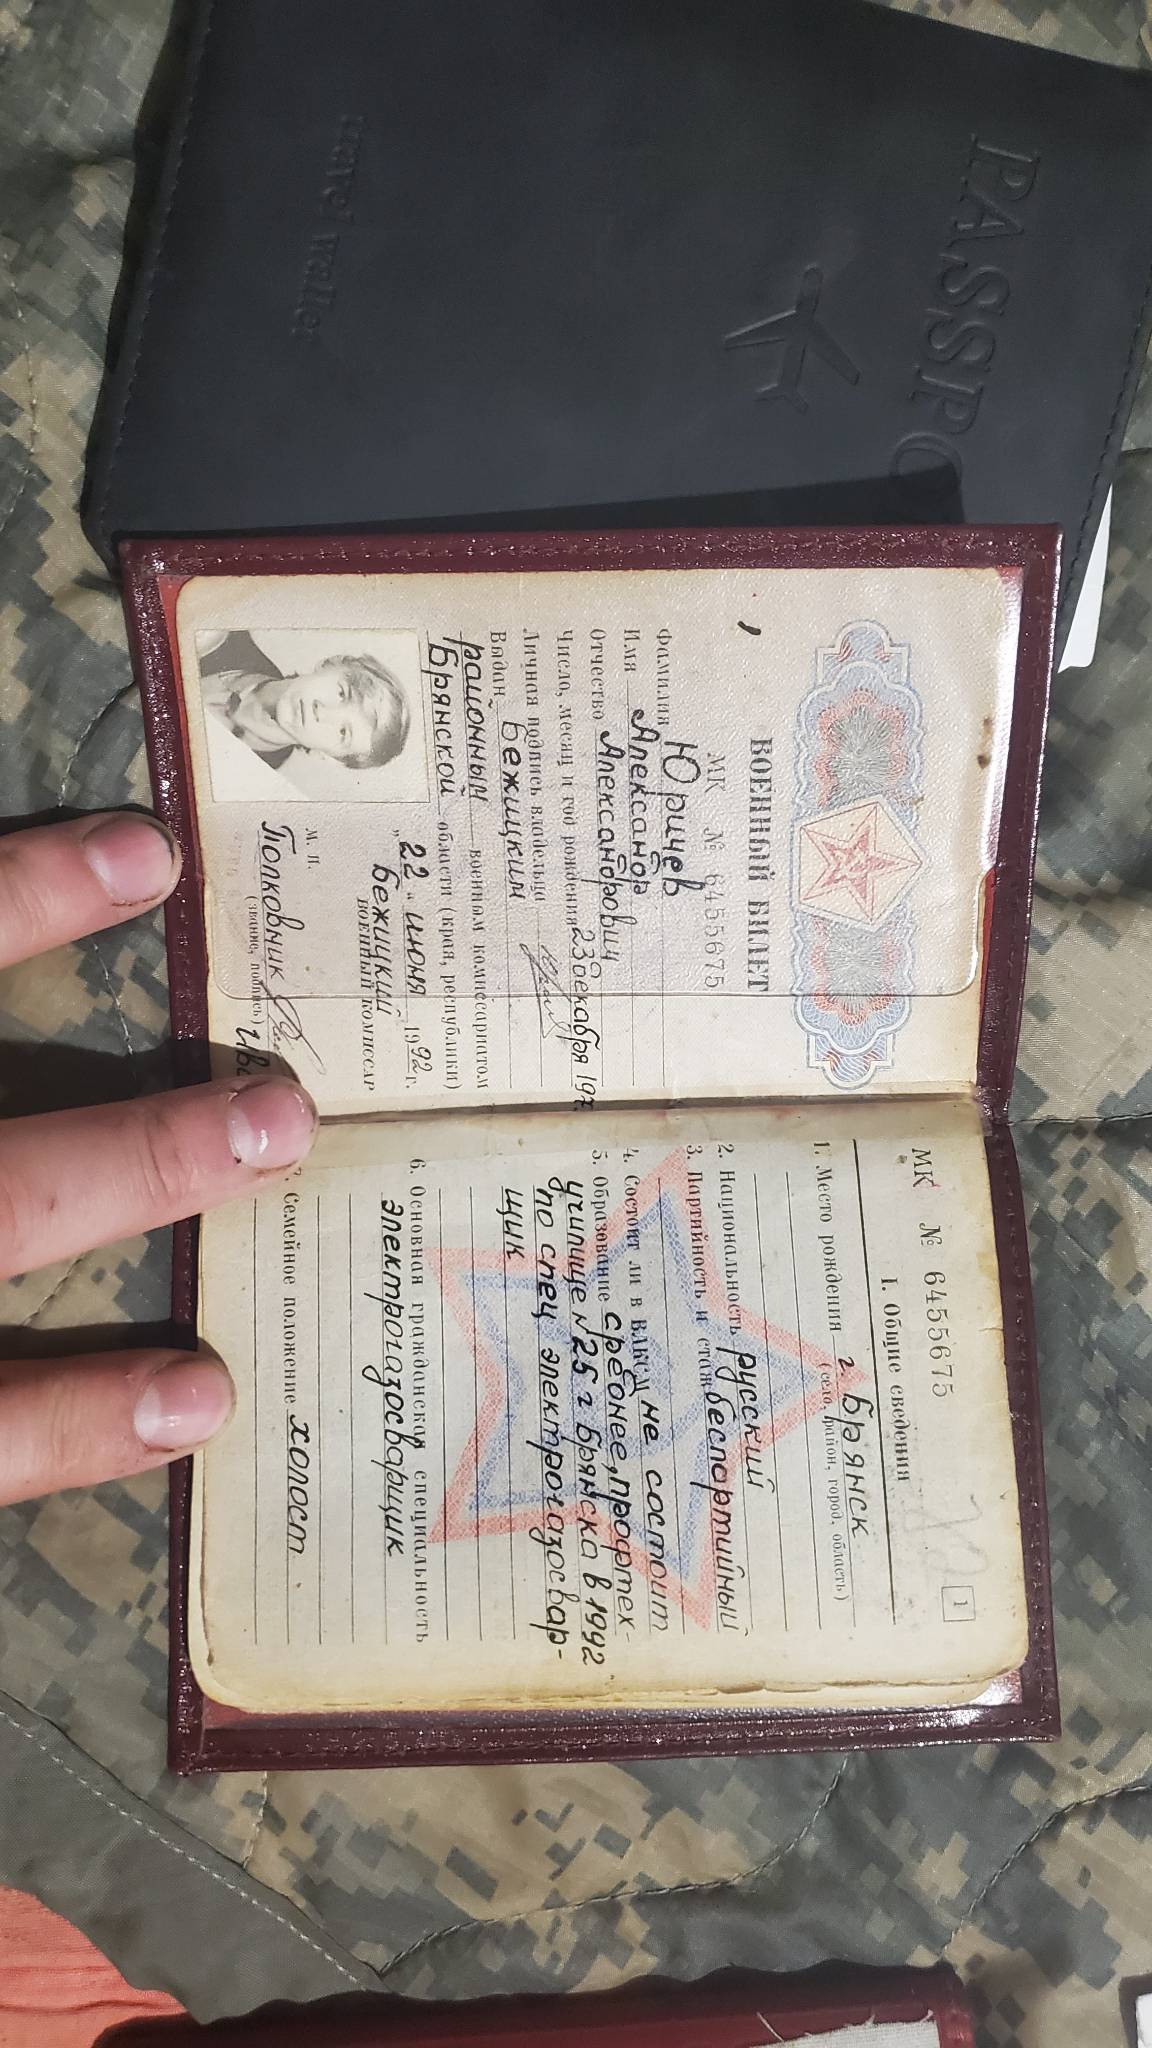 PASSPO
travel wallet
ВОЕННЫЙ БИЛЕТ
МК № 6455675
Фамилия Юричев
Имя Александр
Отчество Александрович
Число, месяц и год рождения 23 декабря 197
Личная подпись владельца
Выдан Бежицким
районным военным комиссариатом
Брянской области (края, республики)
„22“ июня 1992 г.
Бежицкий
ВОЕННЫЙ КОМИССАР
М. П.
Полковник
(звание, подпись)
МК № 6455675
1
I. Общие сведения
1. Место рождения г. Брянск
(село, район, город, область)
2. Национальность русский
3. Партийность и стаж беспартийный
4. Состоит ли в ВЛКСМ не состоит
5. Образование среднее, профтех-
училище №25 г Брянска в 1992
по спец электрогазосвар-
щик
6. Основная гражданская специальность
электрогазосварщик
7. Семейное положение холост